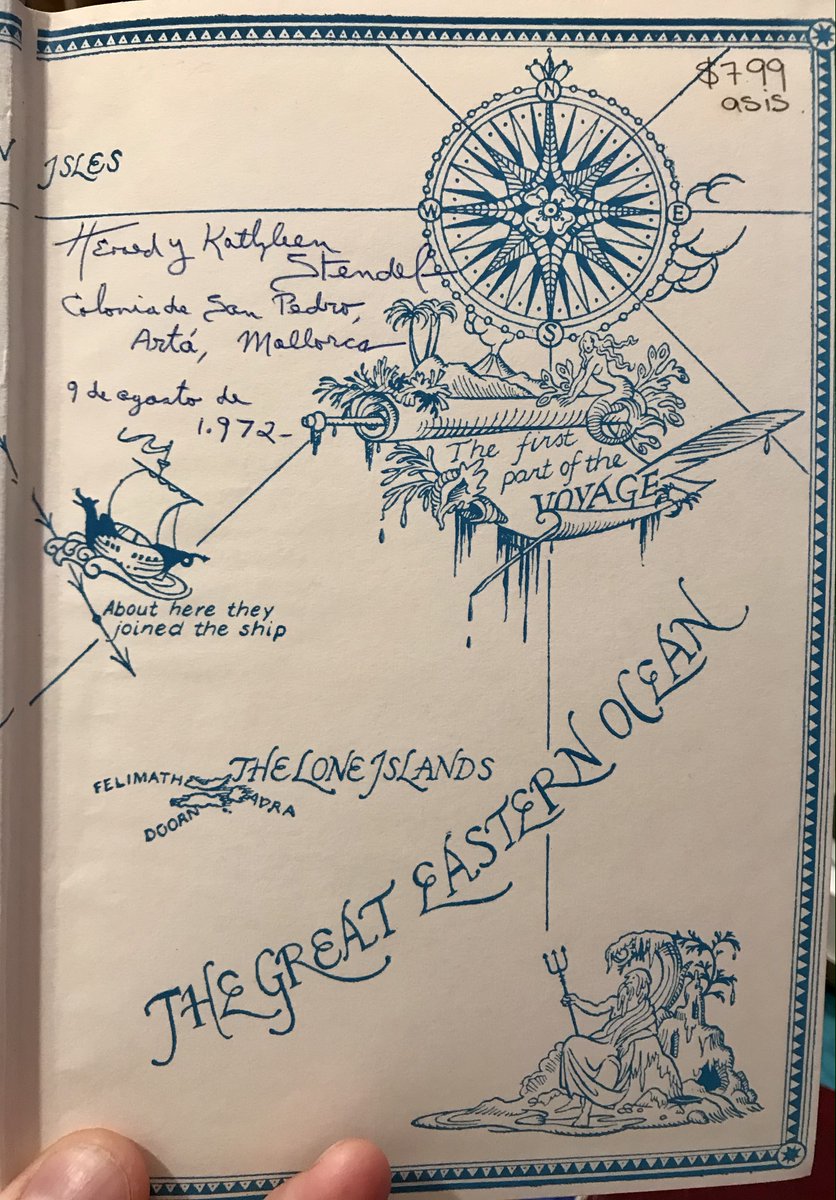 $7.99
as is
N
ISLES
W
E
S
y Kathleen
Colonia de San Pedro,
Artá, Mallorca
9 de agosto de
1.972-
The first
part of the
VOYAGE
About here they
joined the ship
FELIMATH
THE LONE ISLANDS
DOORN
AVRA
THE GREAT EASTERN OCEAN